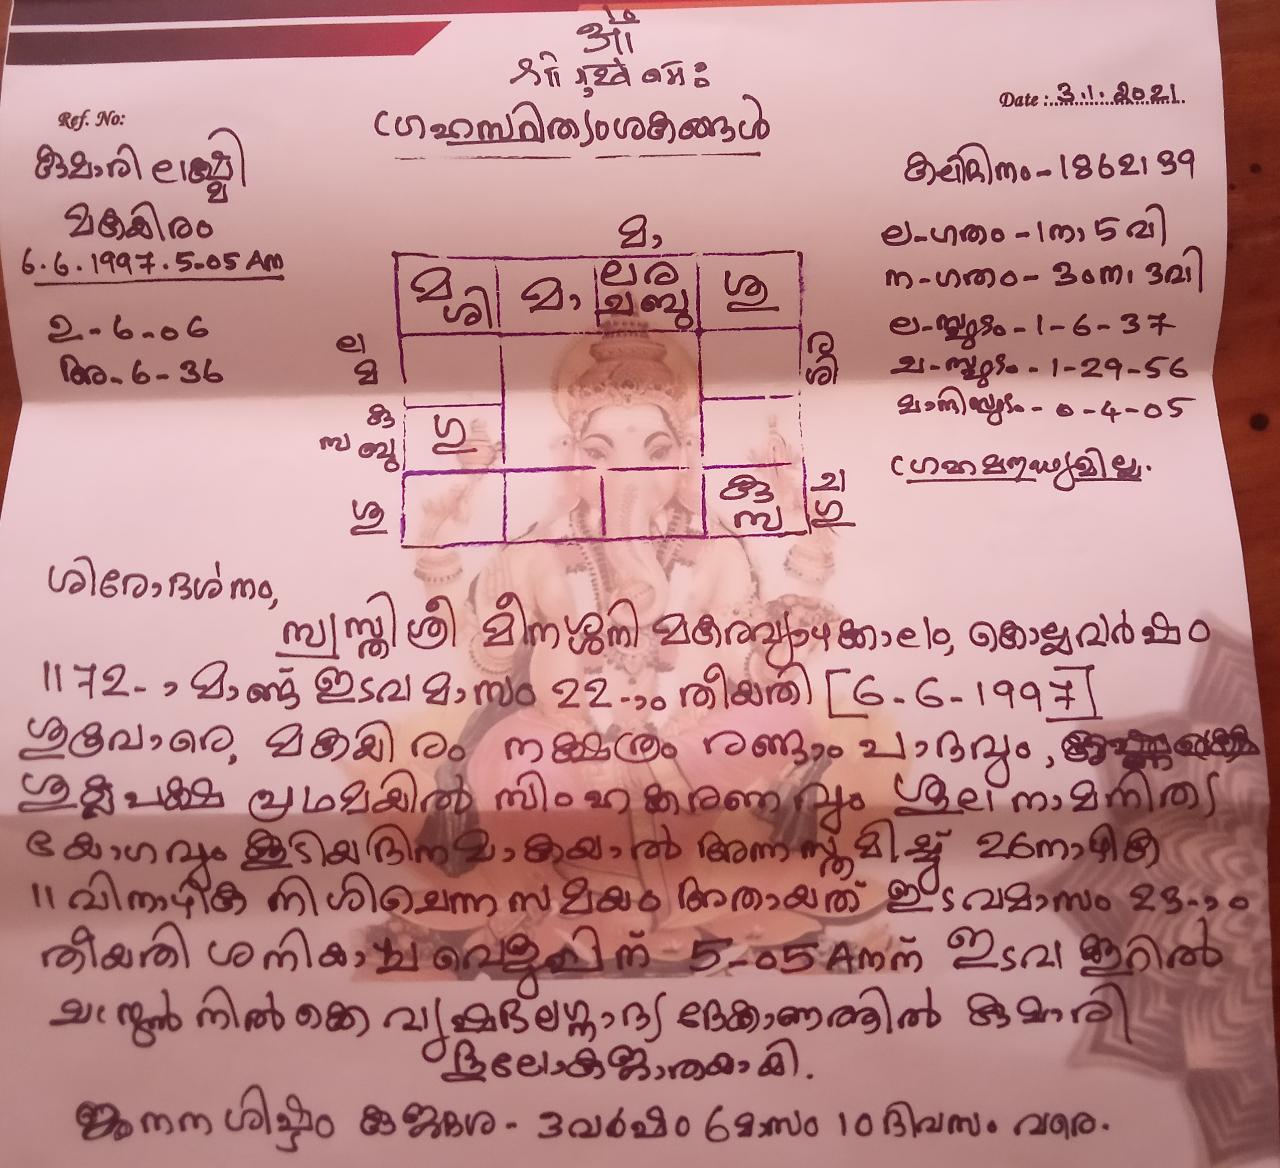 ഓം
ശ്രീ ഗുരവേ നമഃ
Date : 3.1.2021
Ref. No:
ഗ്രഹസ്ഥിത്യംശകങ്ങൾ
കുമാരി ലക്ഷ്മി
മകയിരം
6.6.1997.5-05 Am
ഉ - 6-06
അ - 6-36
കലിദിനം - 1862139
ല-ഗതം - 1നാ 5 വി
ന-ഗതം - 30നാ 3വി
ല-സ്ഫുടം - 1-6-37
ച-സ്ഫുടം - 1-29-56
മാന്ദിസ്ഫുടം - 0-4-05
മാ
മ ശി
മാ
ല ര
ച ബു
ശു
ല
മ
ര
ശി
കു
സ ബു
ഗു
ശു
കു
സ
ച
ഗു
ശിരോദർശനം,
സ്വസ്തിശ്രീ മീനശ്ശനി മകരവ്യാഴക്കാലം, കൊല്ലവർഷം
1172-ാ മാണ്ട് ഇടവമാസം 22-ാം തീയതി [6-6-1997]
ശുക്രവാരെ, മകയിരം നക്ഷത്രം രണ്ടാം പാദവും,
ശുക്ലപക്ഷ പ്രഥമയിൽ സിംഹകരണവും ശൂലനാമനിത്യ
യോഗവും കൂടിയദിനമാകയാൽ അന്നസ്തമിച്ച് 26നാഴിക
11 വിനാഴിക നിശിചെന്നസമയം അതായത് ഇടവമാസം 23-ാം
തീയതി ശനിയാഴ്ച വെളുപ്പിന് 5-05 Amന് ഇടവക്കൂറിൽ
ചന്ദ്രൻ നിൽക്കെ വൃഷഭലഗ്നാദ്യ ദ്രേക്കാണത്തിൽ കുമാരി
ഭൂലോകജാതയായി.
ജനനശിഷ്ടം കുജദശ - 3വർഷം 6മാസം 10ദിവസം വരെ.